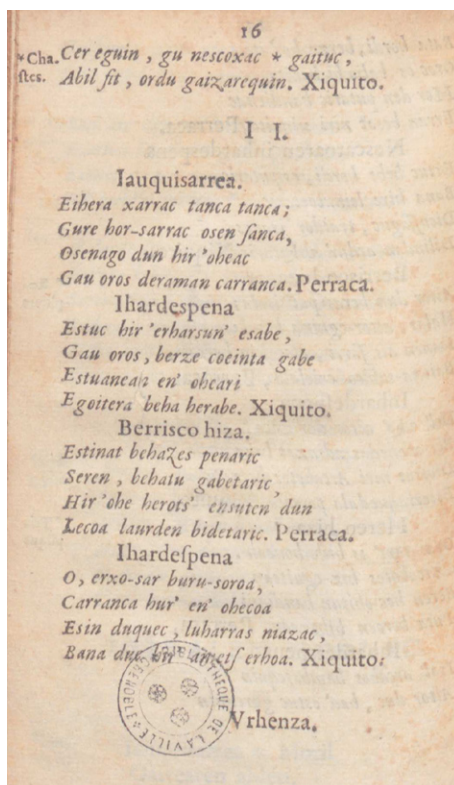 16
*Cha.
stes.
Cer eguin, gu nescoxac * gaituc,
Abil ſit, ordu gaizarequin. Xiquito.
I I.
Iauquisarrea.
Eihera xarrac tanca tanca;
Gure hor-sarrac osen ſanca,
Osenago dun hir 'oheac
Gau oros deraman carranca. Perraca.
Ihardespena
Estuc hir 'erharsun' esabe,
Gau oros, berze coeinta gabe
Estuanean en' oheari
Egoitera beha herabe. Xiquito.
Berrisco hiza.
Estinat behazes penaric
Seren, behatu gabetaric
Hir' ohe herots' ensuten' dun
Lecoa laurden bidetaric. Perraca.
Ihardeſpena
O, erxo-sar buru-soroa,
Carranca hur' en' ohecoa
Esin duquec, luharras niazac,
Bana duc hir' ametſ erhoa. Xiquito.
BIBLIOTHEQUE DE LA VILLE GRENOBLE
Vrhenza.